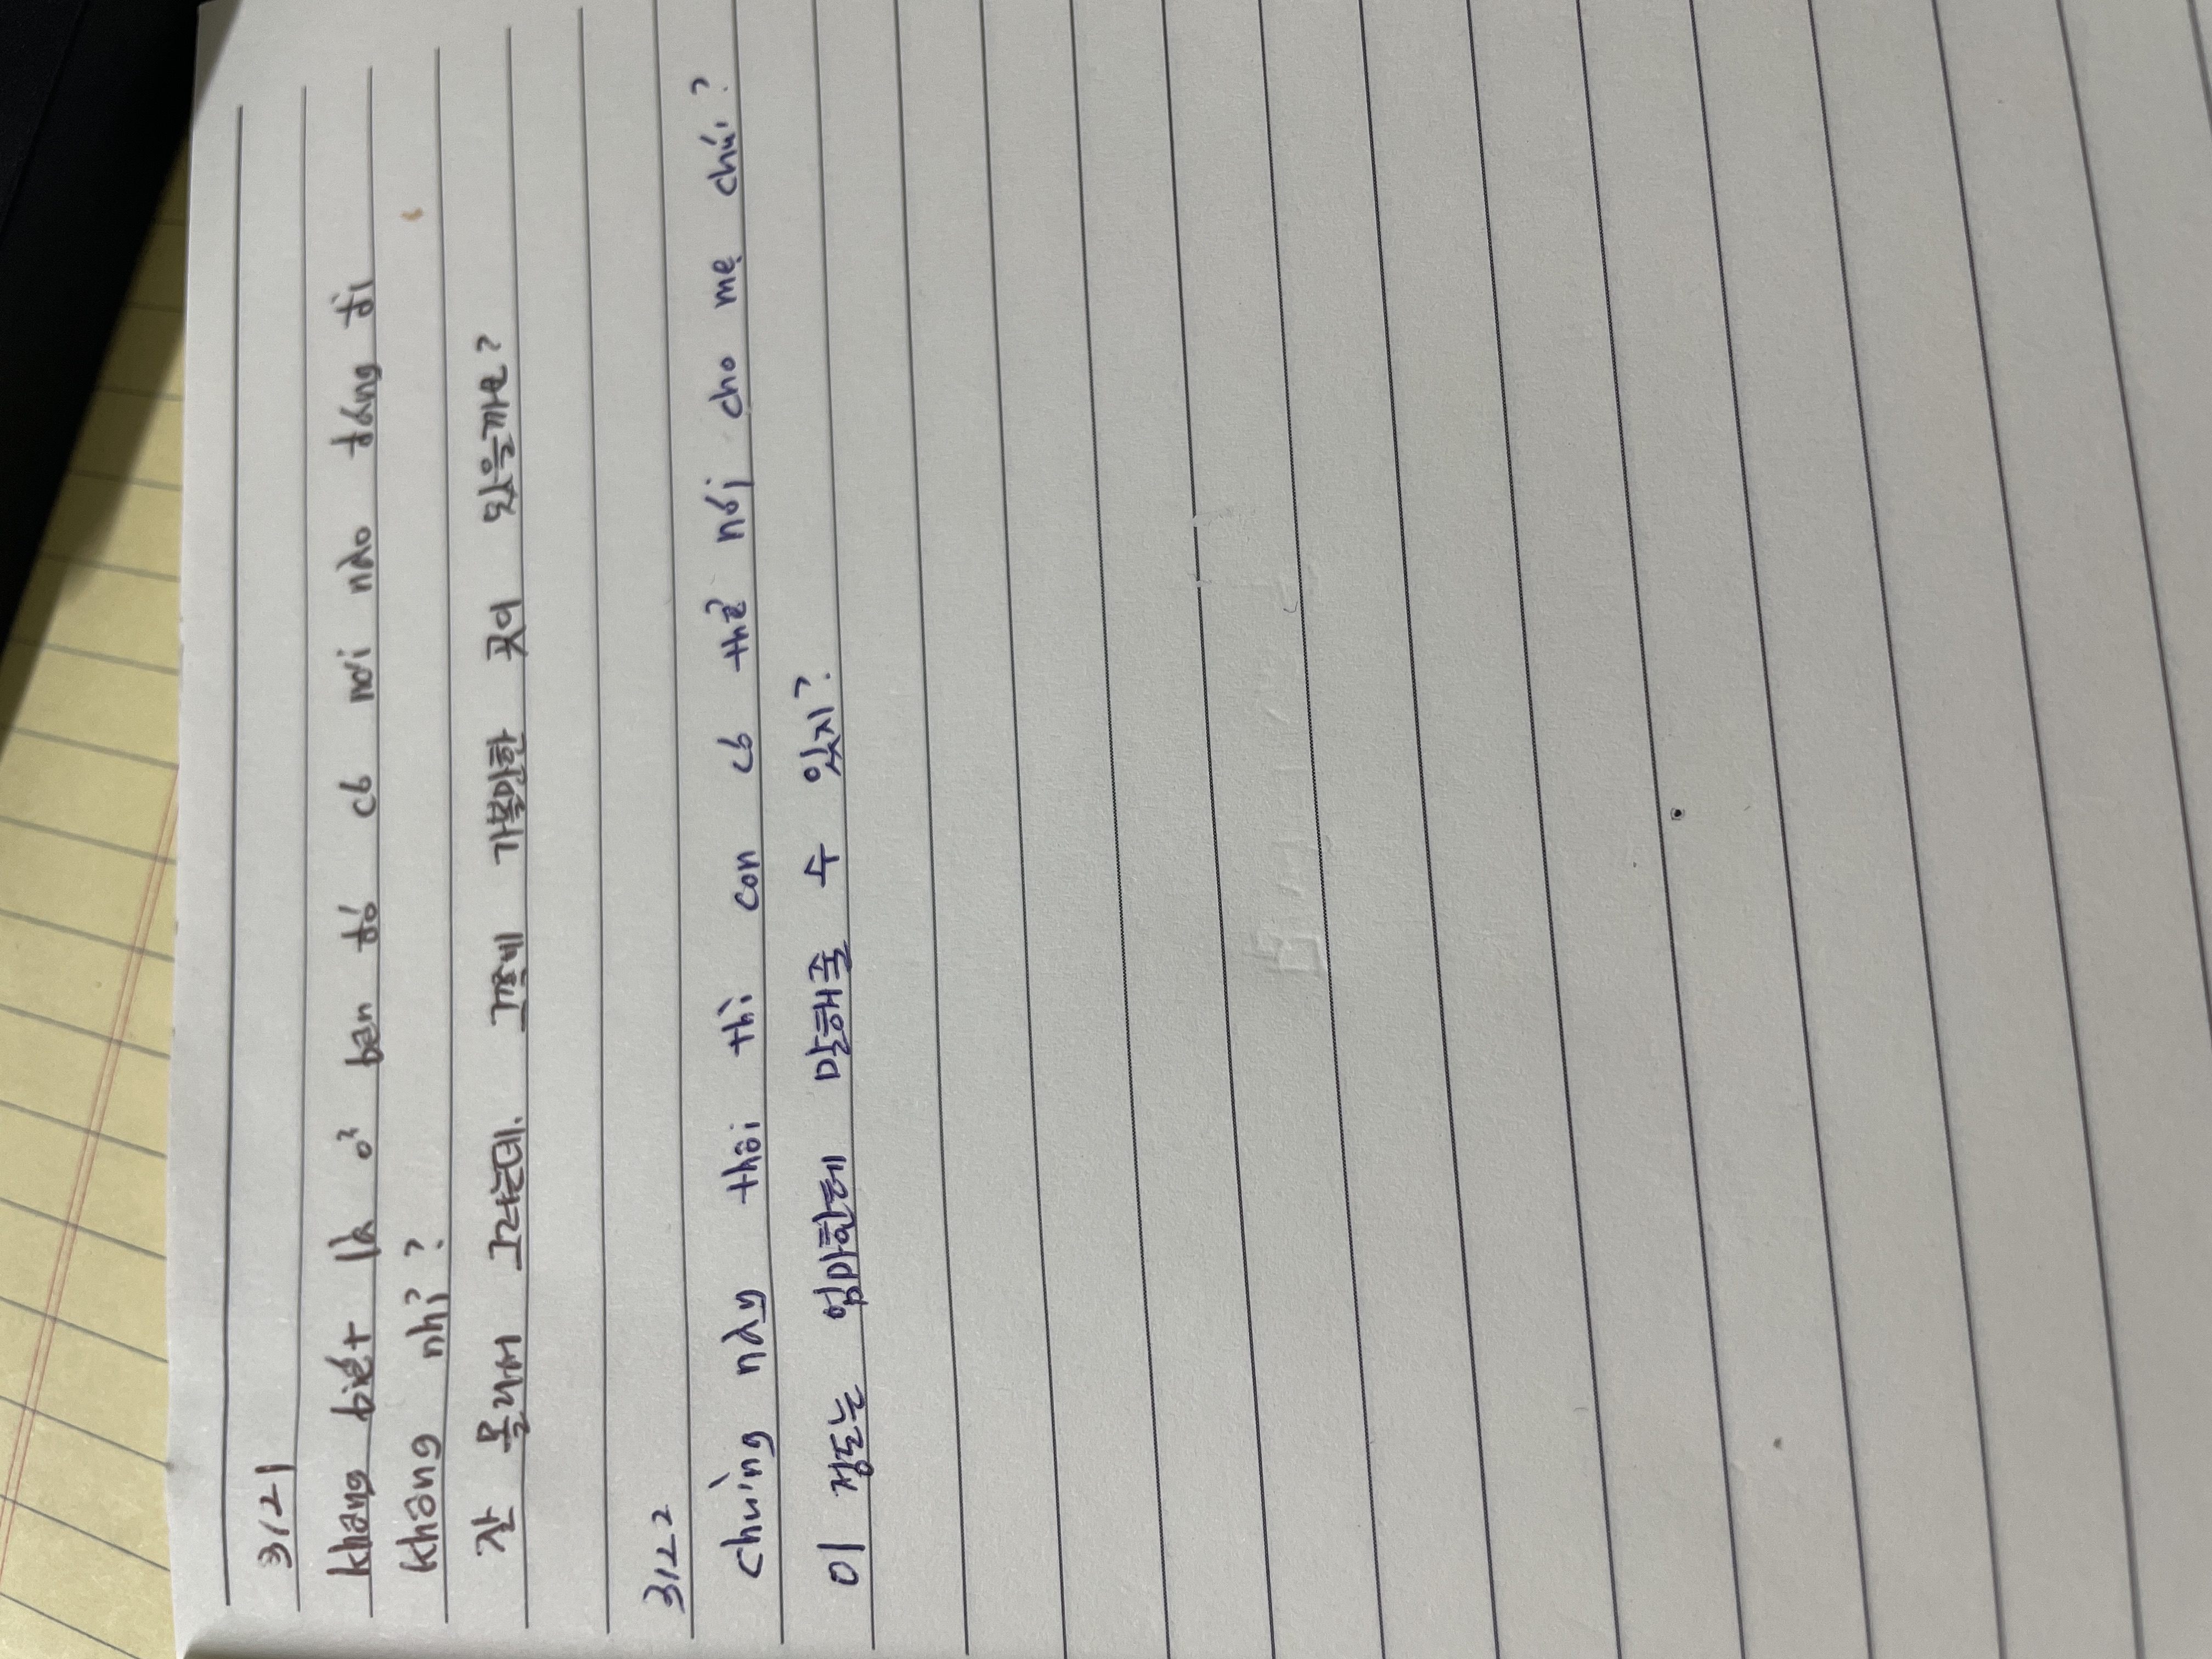 3/21
không biết là ở bên đó có nơi nào đáng đi
không nhỉ?
잘 몰라서 그러는데, 그쪽에 가볼만한 곳이 있을까요?
3/22
chừng này thôi thì con có thể nói cho mẹ chứ?
이 정도는 엄마한테 말해줄 수 있지?